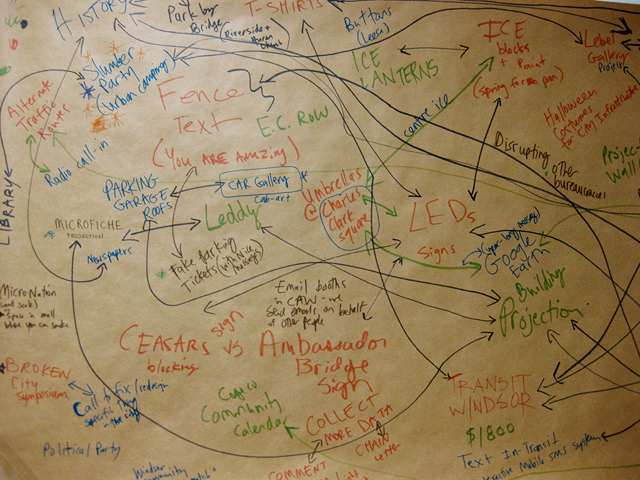 HISTORY
Park by
Bridge
(Riverside +
T-SHIRTS
Buttons
ICE
LANTERNS
ICE
blocks
+ Paint
(Spring
Lebel
Gallery
Project
Alternate
Traffic
Routes
Slumber
Party
(urban camping)
Fence
Text
(YOU ARE AMAZING)
E.C. ROW
centre ice
Halloween
Costumes
for
Disrupting other
bureaucracies
Project
Wall
Radio call-in
LIBRARY
PARKING
GARAGE
ROOFS
CAR Gallery
Cab-art
Umbrellas
@ Charles
Clark
Square
Leddy
LEDs
Signs
MICROFICHE
PROJECTION
Newspapers
Fake Parking
Tickets (with Nice
messages)
(super-long message)
Google
Earth
Micro-Nation
(small scale)
Space in mall
where you can smoke
Email booths
in CAW - we
send emails on behalf
of other people
Building
Projection
CEASARS sign vs Ambassador
blocking
Bridge
Sign
BROKEN
City
Symposium
Call to Fix/redesign
specific thing
in the city
Community
Calendar
COLLECT
MORE DATA
CHAIN
Letter
TRANSIT
WINDSOR
$1800
Text In-Transit
Mobile SMS system
Political Party
Windsor
COMMENT